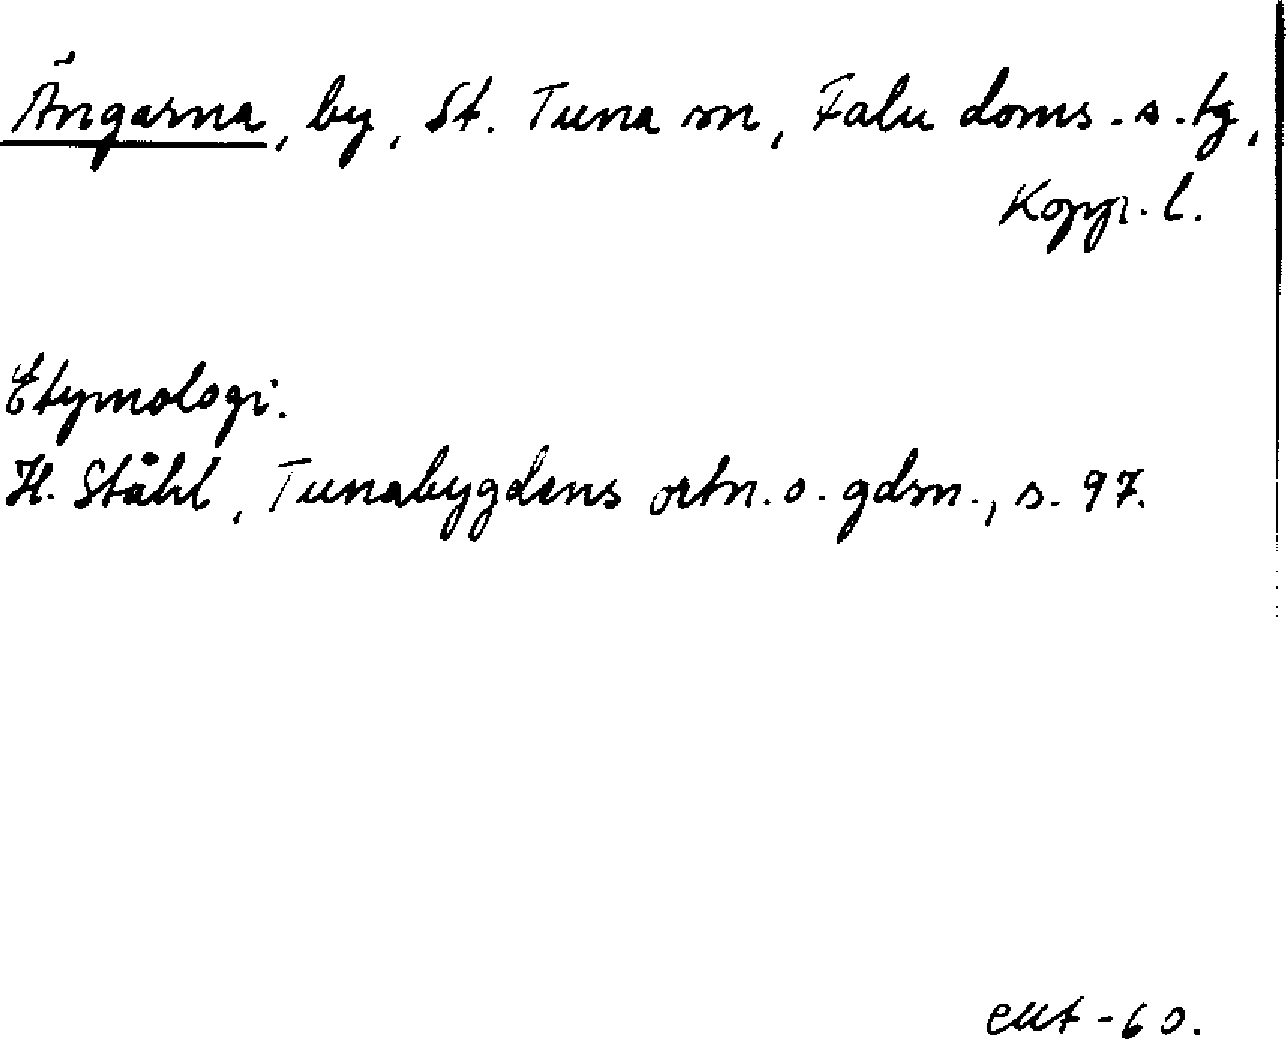 Ängarna, by, St. Tuna sn, Falu doms.s.tg,
Kopp. l.
Etymologi.
H. Ståhl, Tunabygdens ortn. o. gdsn., s. 97.
-60.